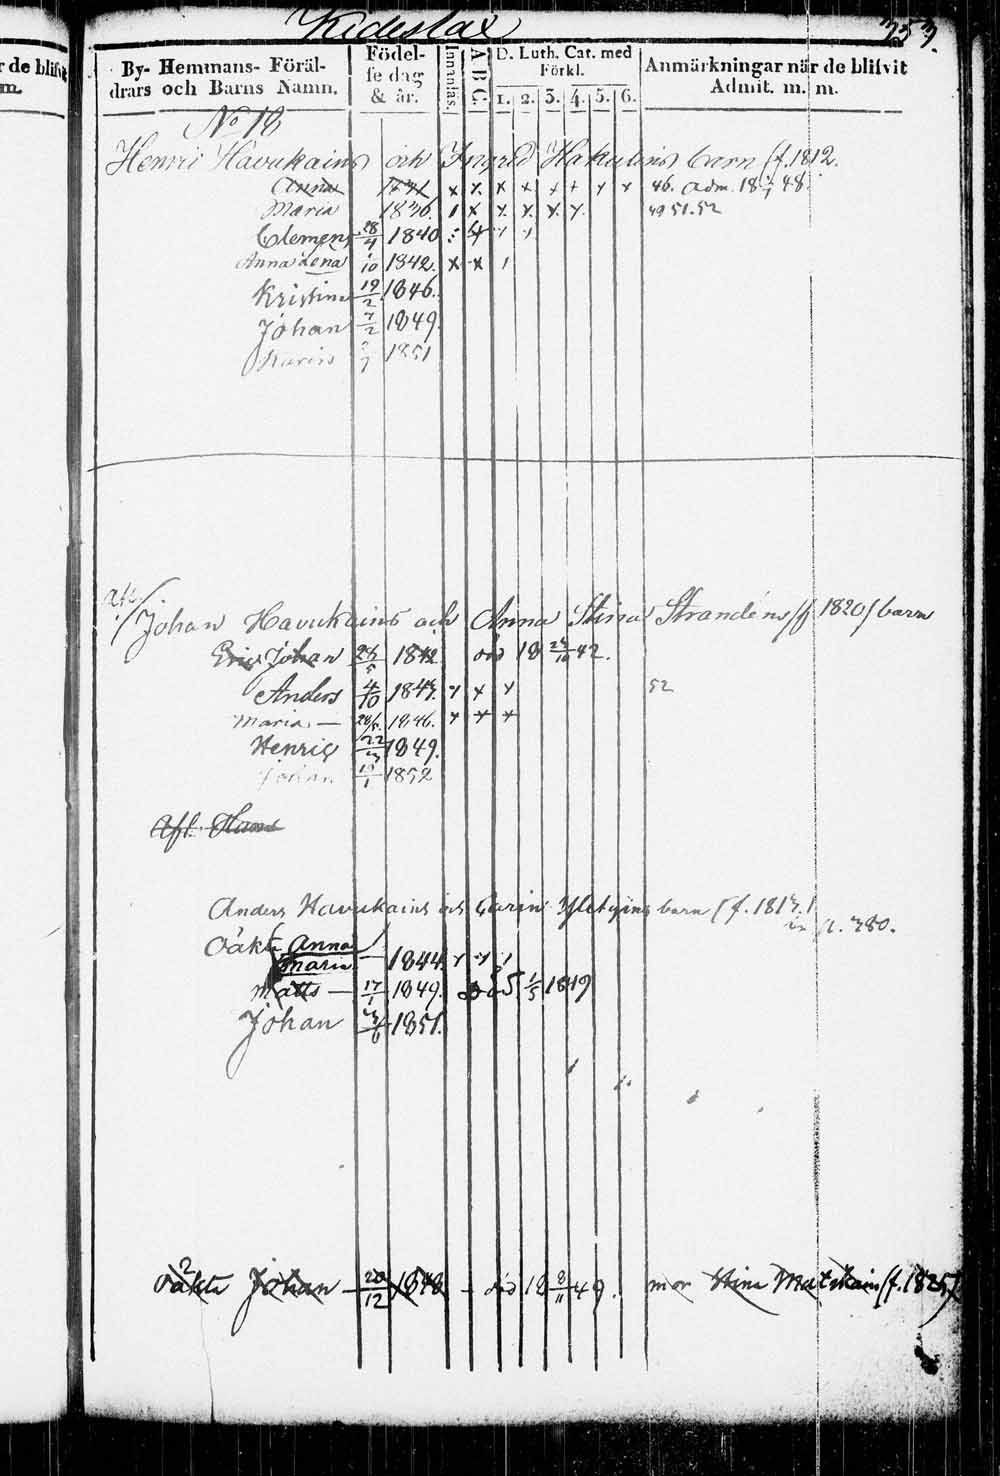 r de blifvit
m.
Kideslax
353.
By- Hemmans- Föräl-
drars och Barns Namn.
Födel-
se dag
& år.
Innanläs.
A B C.
D. Luth. Cat. med
Förkl.
1. 2. 3. 4. 5. 6.
Anmärkningar när de blifvit
Admit. m. m.
No 18
Henric Havukains och Ingrid Hakulins barn (f. 1812.
Anna 1831 x x x x x x x x 46. adm. 18 48
Maria 1836. 1 x x x x x 49 51. 52
Clemens 28/4 1840
Anna Lena /10 1842. x x 1
Kristina 19/2 1846.
Johan 7/2 1849.
Karin /7 1851
Johan Havukains och Anna Stina Strandéns (f 1820) barn
Eric Johan 24/5 1842 död 18 24/10 42.
Anders 4/10 1843. x x x 52
Maria — 28/5. 1846. x x x
Henric 22/3 1849.
Johan 19/1 1852
Afl. Hans
Anders Havukains och Carin barn (f. 1813.)
a. 380.
Oäkta Anna
Maria — 1844. x x 1
Matts — 17/1 1849. död 1/5 1849
Johan 3/6 1851.
Oäkta Johan — 20/12 1848 - död 18 8/11 49. mor Stina Matskain (f. 1825)